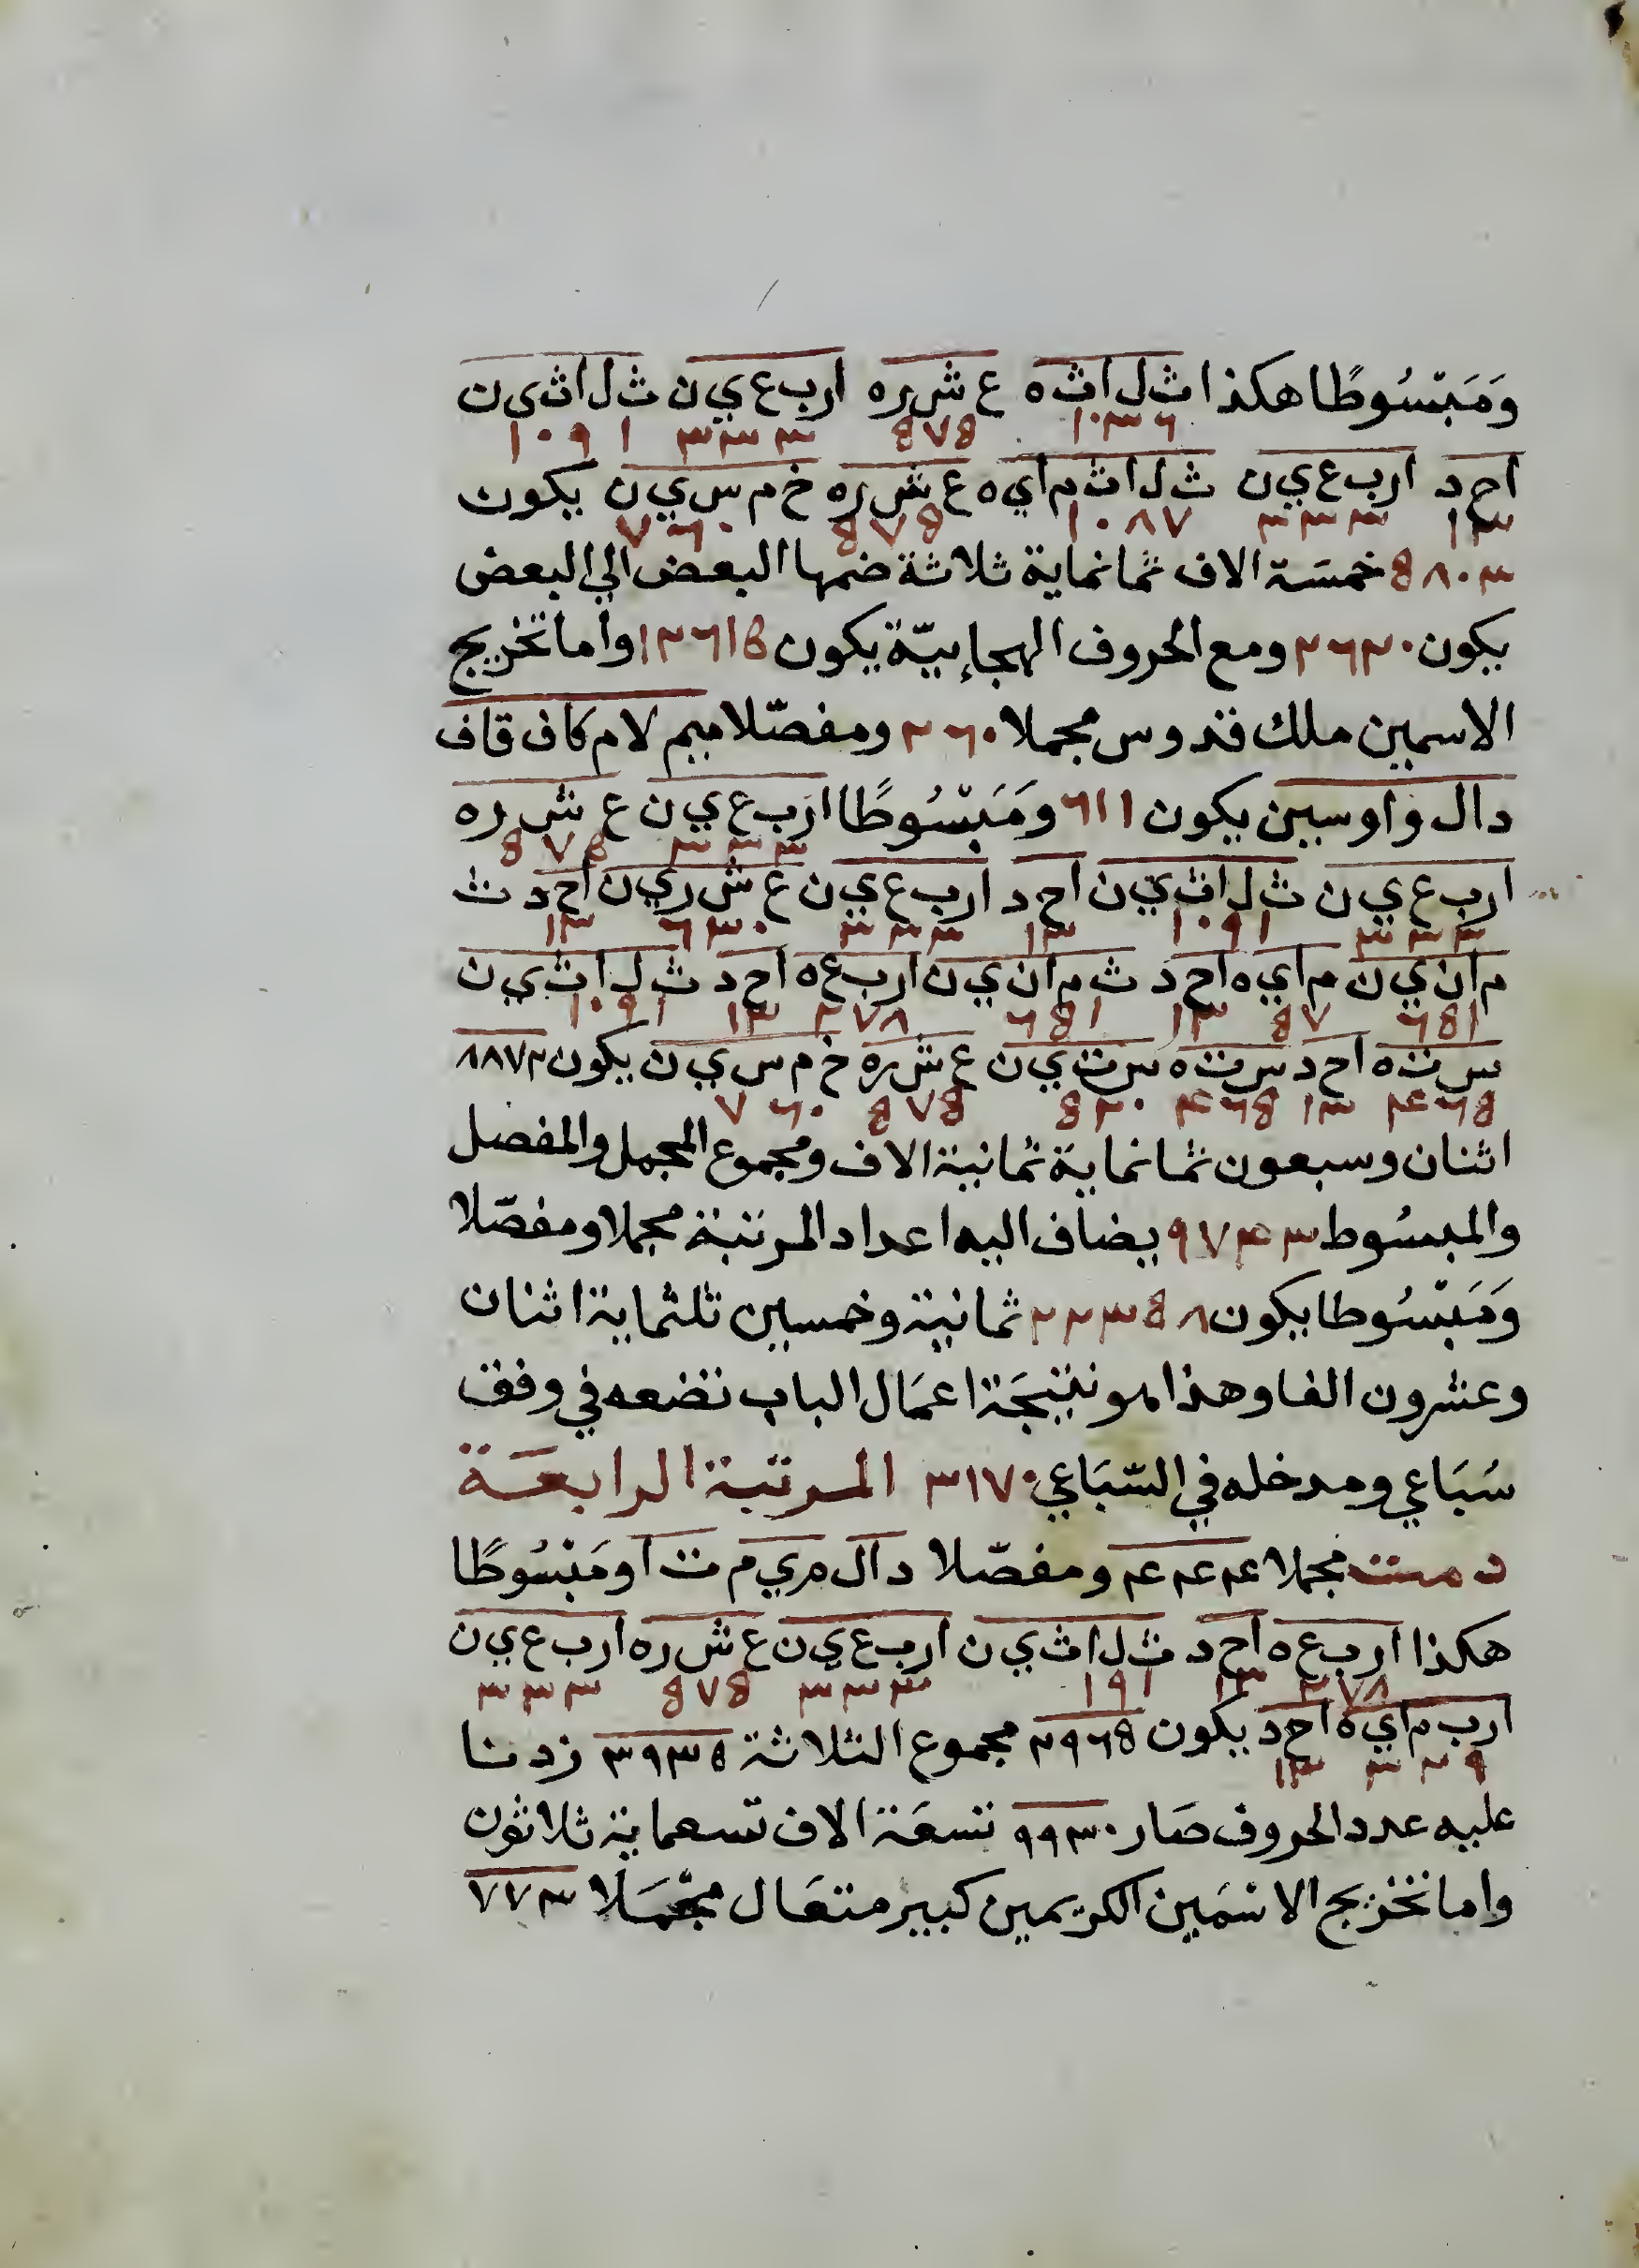 وَمَبْسُوطًا هكذا ث ل ا ث ه ع ش ر ه ا ر ب ع ي ن ث ل ا ث ي ن
١٠٣٦ ٥٧٥ ٣٣٣ ١٠٩١
ا ح د ا ر ب ع ي ن ث ل ا ث م ا ي ه ع ش ر ه خ م س ي ن يكون
١٣ ٣٣٣ ١٠٨٧ ٥٧٥ ٧٦٠
٥٨٠٣ خمسَة الاف ثمانماية ثلاثة ضمها البعض الي البعض
يكون ٢٦٢٠ ومع الحروف الهجائيّة يكون ١٢٦١٥ واما تخريج
الاسمين ملك قدوس مجملا ٢٦٠ ومفصّلا ميم لام كاف قاف
دال واو سين يكون ٦١١ وَمَبْسُوطًا ا ر ب ع ي ن ع ش ر ه
٣٣٣ ٥٧٥
ا ر ب ع ي ن ث ل ا ث ي ن ا ح د ا ر ب ع ي ن ع ش ر ي ن ا ح د ث
٣٣٣ ١٠٩١ ١٣ ٣٣٣ ٦٣٠ ١٣
م ا ن ي ن م ا ي ه ا ح د ث م ا ن ي ن ا ر ب ع ه ا ح د ث ل ا ث ي ن
٦٥١ ٥٧ ١٣ ٦٥١ ٢٧٨ ١٣ ١٠٩١
س ت ه ا ح د س ت ه س ت ي ن ع ش ر ه خ م س ي ن يكون ٨٨٧٢
٤٦٥ ١٣ ٤٦٥ ٥٢٠ ٥٧٥ ٧٦٠
اثنان وسبعون ثمانماية ثمانية الاف ومجموع المجمل والمفصل
والمبسُوط ٩٧٤٣ يضاف اليه اعداد المرتبة مجملا ومفصّلا
وَمَبْسُوطا يكون ٢٢٣٥٨ ثمانية وخمسين ثلثماية اثنان
وعشرون الفا وهذا هو نتيجَة اعمَال الباب نضعه في وفق
سُبَاعي ومدخله في السّبَاعي ٣١٧٠ المرتبة الرابعَة
دمت مجملا ٤٤٤ ومفصّلا د ا ل م ي م ت ا ومَبْسُوطًا
هكذا ا ر ب ع ه ا ح د ث ل ا ث ي ن ا ر ب ع ي ن ع ش ر ه ا ر ب ع ي ن
٢٧٨ ١٣ ١٩١ ٣٣٣ ٥٧٥ ٣٣٣
ا ر ب م ا ي ه ا ح د يكون ٢٩٦٥ مجموع الثلاثة ٣٩٣٥ زدنا
١٣
عليه عدد الحروف صَار ٩٩٣٠ تسعَة الاف تسعماية ثلاثون
واما تخريج الاسْمَين الكريمين كبير متعَال مجْمَلا ٧٧٣